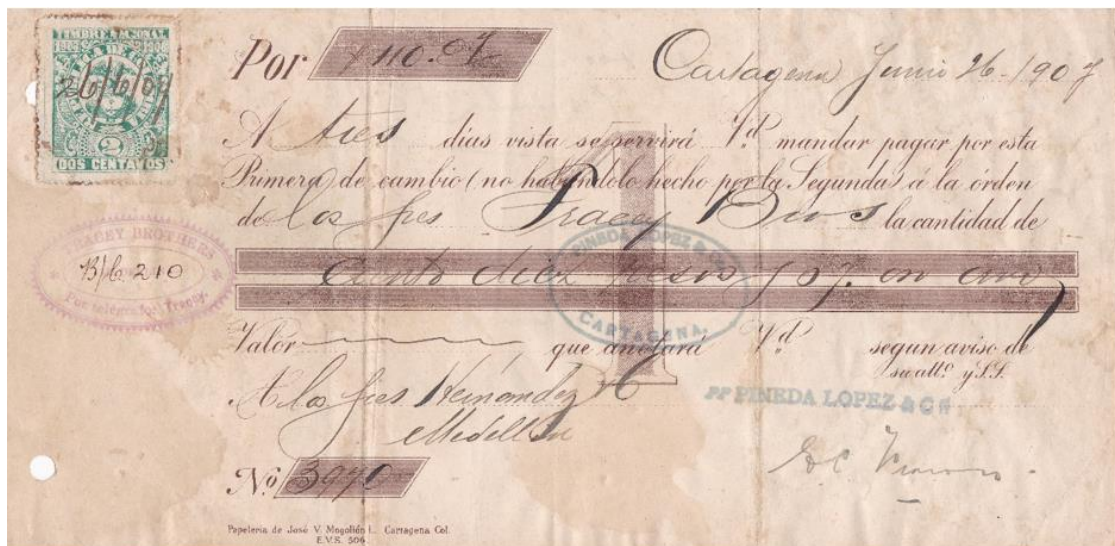 TIMBRE NACIONAL
26/6/07
2
DOS CENTAVOS
Por $ 110.07
Cartagena Junio 26-1907
A tres días vista se servirá Vd. mandar pagar por esta
Primera de cambio (no habiéndolo hecho por la Segunda) á la órden
de los sres Tracey Bros la cantidad de
ciento diez pesos 07 en oro
TRACEY BROTHERS
B/C 210
Por telégrafo: Tracey.
PINEDA LOPEZ & Co.
CARTAGENA.
1
Valor que anotará Vd segun aviso de
su atto. y S.S.
A los sres Hernandez
Medellin
pp PINEDA LOPEZ & Co
No. 3970
Papelería de José V. Mogollón Cartagena Col.
E.V.S. 506